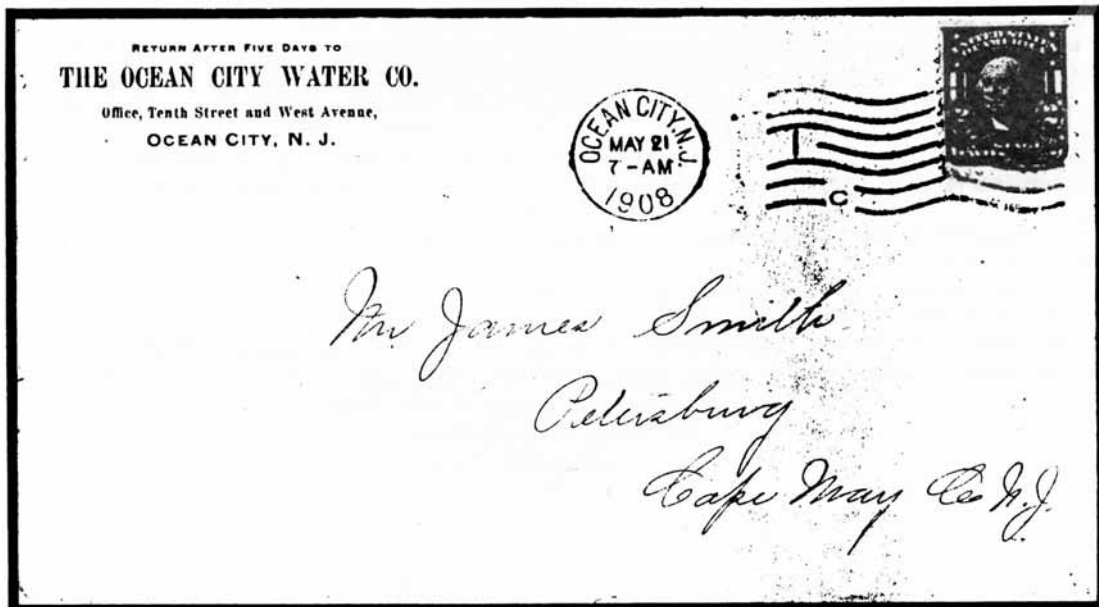 RETURN AFTER FIVE DAYS TO
THE OCEAN CITY WATER CO.
Office, Tenth Street and West Avenue,
OCEAN CITY, N. J.
OCEAN CITY, N.J.
MAY 21
7-AM
1908
1
C
UNITED STATES
OF AMERICA
Mr. James Smith
Petersburg
Cape May Co N.J.